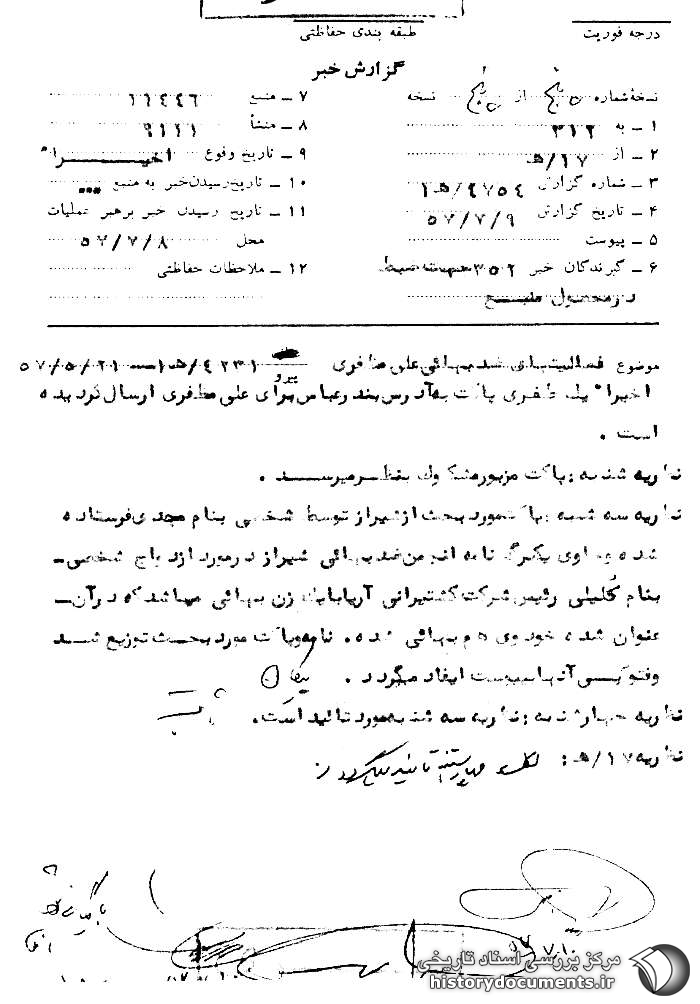 درجه فوریت
طبقه بندی حفاظتی
گزارش خبر
نسخهٔ شماره پنج از پنج نسخه
۱ ـ به ۳۱۲
۲ ـ از ۱۷/ﻫ
۳ ـ شماره گزارش
۴ ـ تاریخ گزارش ۵۷/۷/۹
۵ ـ پیوست
۶ ـ گیرندگان خبر ۳۵۲ جهت ضبط
در محصول منبع
۷ ـ منبع ۱۱۴۴۶
۸ ـ منشأ ۹۱۱۱
۹ ـ تاریخ وقوع اخیرا"
۱۰ ـ تاریخ رسیدن خبر به منبع
۱۱ ـ تاریخ رسیدن خبر برهبر عملیات
محل ۵۷/۷/۸
۱۲ ـ ملاحظات حفاظتی
موضوع فعالیتهای ضد بهائی علی مظفری پیرو ۴۲۳۱/ﻫ۱ ـ ۵۷/۵/۲۱
اخیرا" یک طغری پاکت به آدرس بندرعباس برای علی مظفری ارسال گردیده
است .
نظریه شنبه : پاکت مزبور مشکوک بنظر میرسد .
نظریه سه شنبه : پاکت مورد بحث از شیراز توسط شخصی بنام مجدی فرستاده
شده و حاوی یکبرگ نامه انجمن ضد بهائی شیراز در مورد ازدواج شخصی ـ
بنام کلیلی رئیس شرکت کشتیرانی آریا با یک زن بهائی میباشد که در آن ـ
عنوان شده خود وی هم بهائی شده . نامه و پاکت مورد بحث توزیع شد
و فتوکپی آنها بپیوست ایفاد میگردد .
نظریه چهارشنبه : نظریه سه شنبه مورد تائید است .
نظریه ۱۷/ﻫ :
مرکز بررسی اسناد تاریخی
historydocuments.ir